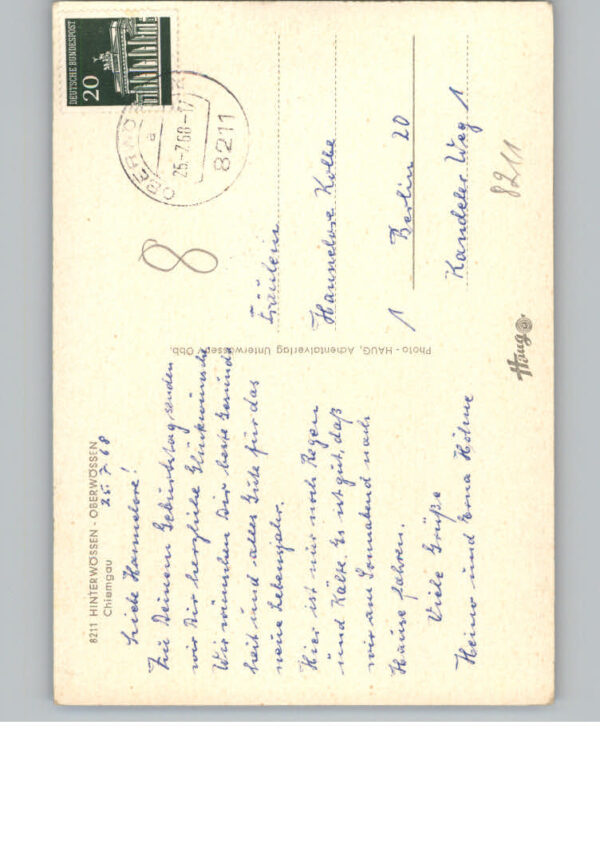 8211 HINTERWÖSSEN - OBERWÖSSEN
Chiemgau
25.7.68
Liebe Hannelore!
Zu Deinem Geburtstag senden
wir Dir herzliche Glückwünsche
Wir wünschen Dir beste Gesund-
heit und alles Gute für das
neue Lebensjahr.
Hier ist nur noch Regen
und Kälte. Es ist gut, daß
wir am Sonnabend nach
Hause fahren.
Viele Grüße
Heinz und Erna Höhne
Photo - HAUG, Achentalverlag Unterwössen/Obb.
DEUTSCHE BUNDESPOST
20
OBERWÖ
a
25.-7.68-17
8211
8
Fräulein
Hannelore Kolbe
1 Berlin 20
Kandeler Weg 1
8211
Haug